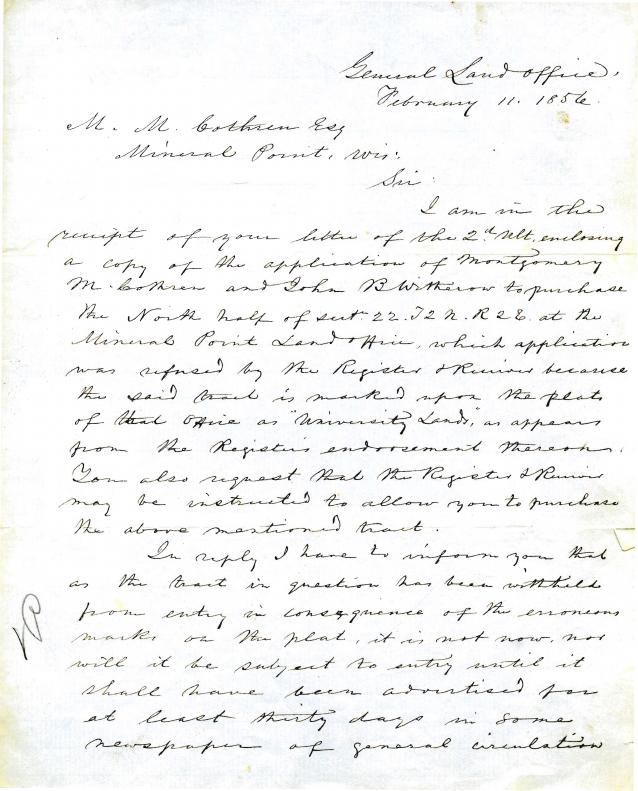 General Land Office,
February 11. 1856.
M. M. Cothren Esq
Mineral Point, Wis:
Sir:
I am in the
receipt of your letter of the 2d Ult. enclosing
a copy of the application of Montgomery
M. Cothren and John B Witherow to purchase
the North half of Sect 22. T2 N. R2E. at the
Mineral Point Land Office, which application
was refused by the Register & Receiver because
the said tract is marked upon the plats
of that Office as "University Lands", as appears
from the Register's endorsement thereon.
You also request that the Register & Receiver
may be instructed to allow you to purchase
the above mentioned tract.
In reply I have to inform you that
as the tract in question has been withheld
from entry in consequence of the erroneous
marks on the plat, it is not now, nor
will it be subject to entry until it
shall have been advertised for
at least thirty days in some
newspaper of general circulation